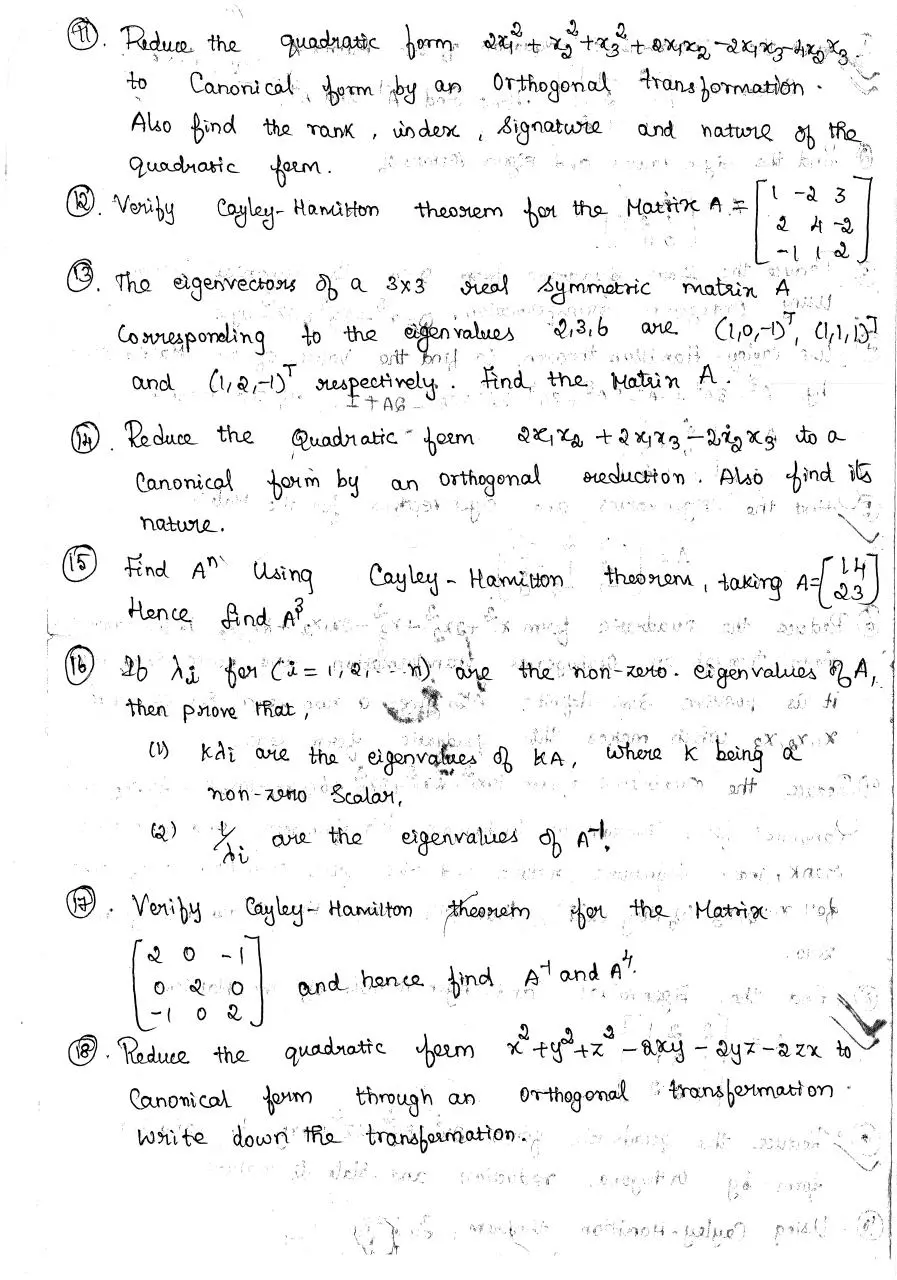 11. Reduce the quadratic form 2x₁² + x₂² + x₃² + 2x₁x₂ - 2x₁x₃ - 4x₂x₃
to Canonical form by an Orthogonal transformation.
Also find the rank, index, Signature and nature of the
quadratic form.
12. Verify Cayley-Hamilton theorem for the Matrix A = [1 -2 3
2 4 -2
-1 1 2]
13. The eigenvectors of a 3x3 real symmetric matrix A
Corresponding to the eigenvalues 2,3,6 are (1,0,-1)ᵀ, (1,1,1)ᵀ
and (1,2,-1)ᵀ respectively. Find the Matrix A.
14. Reduce the Quadratic form 2x₁x₂ + 2x₁x₃ - 2x₂x₃ to a
Canonical form by an orthogonal reduction. Also find its
nature.
15 Find Aⁿ Using Cayley-Hamilton theorem, taking A = [1 4
2 3]
Hence find A³.
16 If λi for (i = 1, 2, ... n) are the non-zero eigenvalues of A,
then prove that,
(1) Kλi are the eigenvalues of KA, where K being a
non-zero Scalar,
(2) 1/λi are the eigenvalues of A⁻¹.
17. Verify Cayley-Hamilton theorem for the Matrix
[2 0 -1
0 2 0
-1 0 2] and hence find A⁻¹ and A⁴.
18. Reduce the quadratic form x² + y² + z² - 2xy - 2yz - 2zx to
Canonical form through an orthogonal transformation.
Write down the transformation.